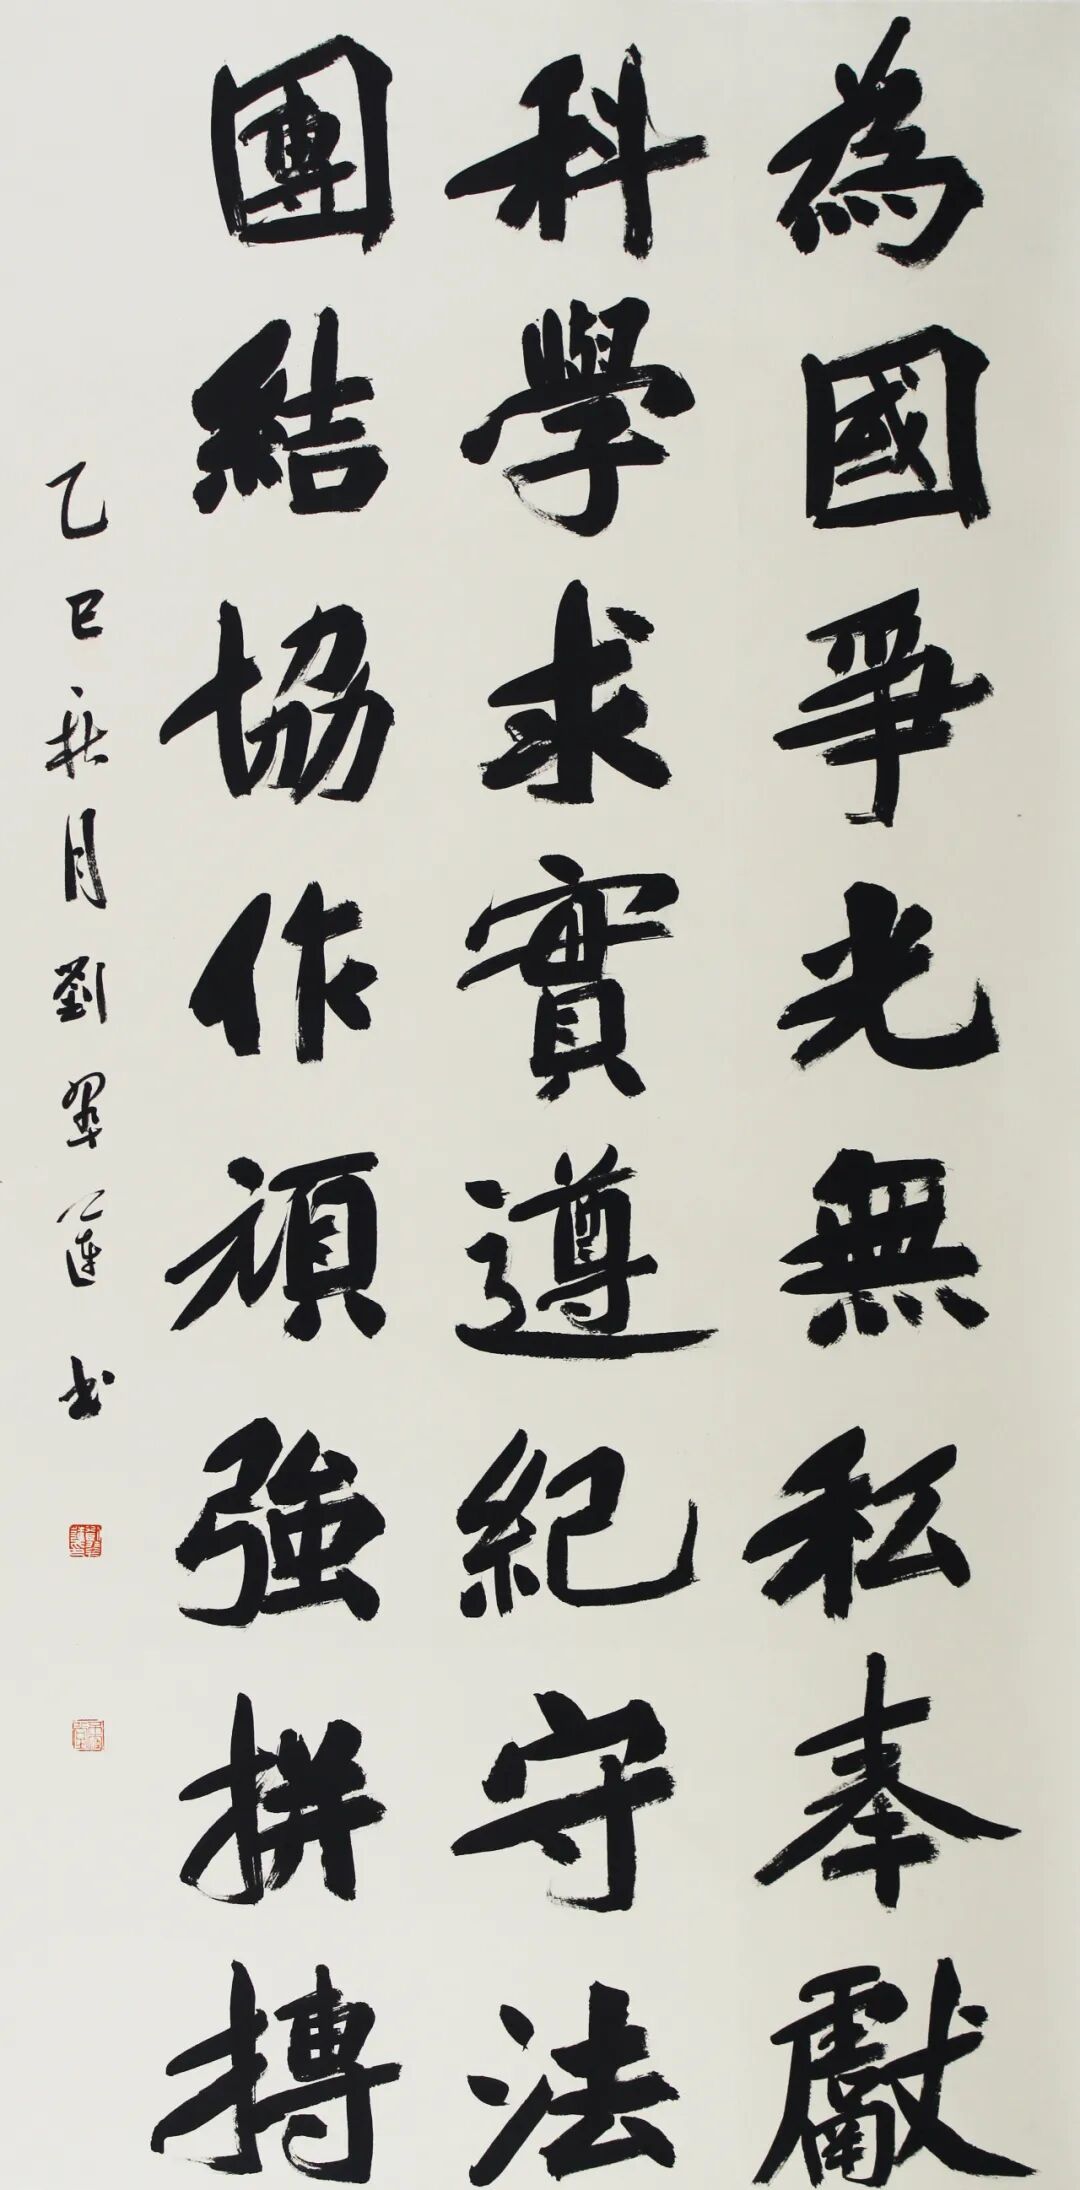 為國爭光無私奉獻
科學求實遵紀守法
團結協作頑強拼搏
乙巳秋月劉翠蓮书